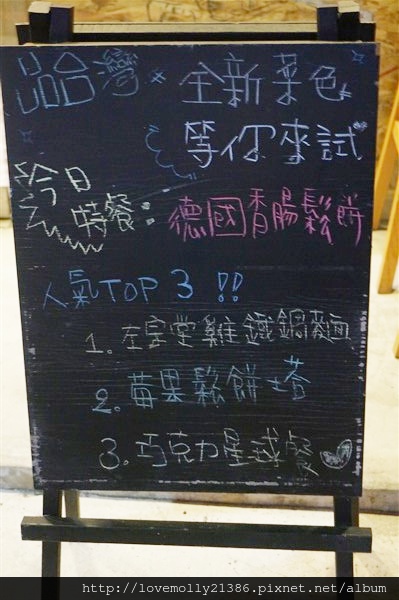 品台灣
全新菜色
等你來試
今日
特餐:
德國香腸鬆餅
人氣TOP 3 !!
1. 左宗堂雞鐵鍋麵
2. 莓果鬆餅塔
3. 巧克力星球餐
http://lovemolly21386.pixnet.net/album